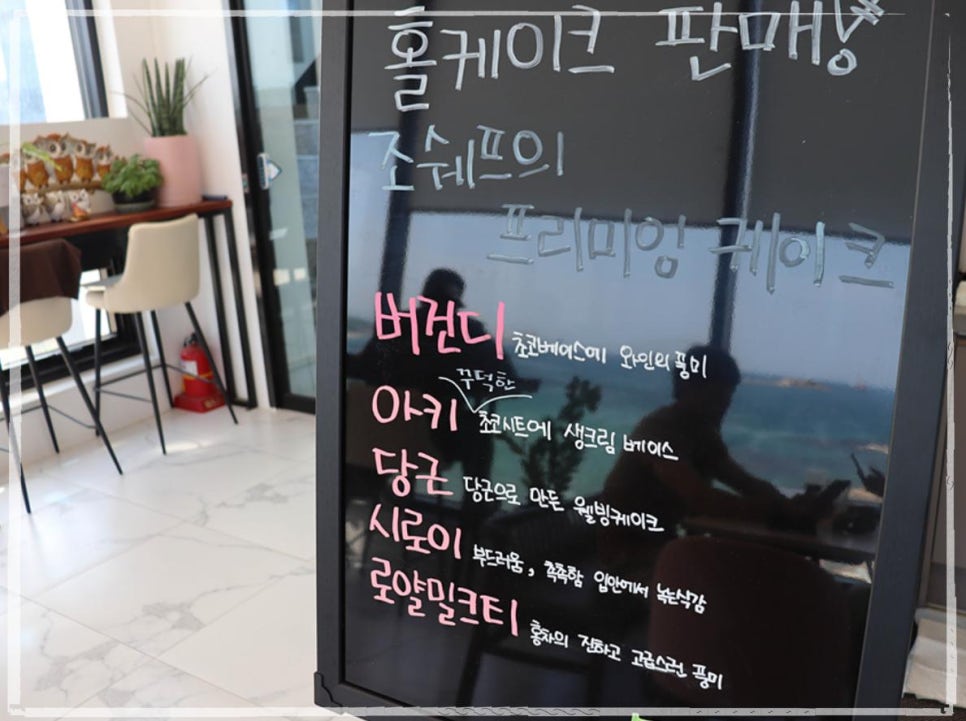 홀케이크 판매중
조쉐프의
프리미엄 케이크
버건디 초코베이스에 와인의 풍미
꾸덕한
아키 초코시트에 생크림 베이스
당근 당근으로 만든 웰빙케이크
시로이 부드러움, 촉촉함 입안에서 녹는식감
로얄밀크티 홍차의 진하고 고급스런 풍미